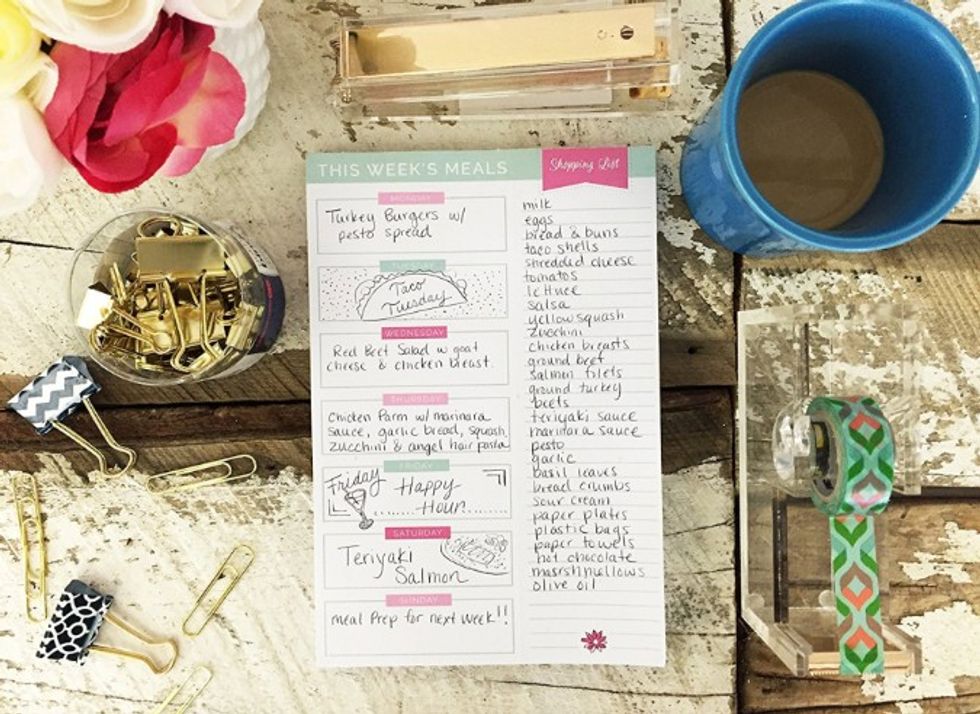 THIS WEEK'S MEALS
MONDAY
Turkey Burgers w/
pesto spread
TUESDAY
Taco
Tuesday
WEDNESDAY
Red Beet Salad w goat
cheese & chicken breast.
THURSDAY
Chicken Parm w/ marinara
sauce, garlic bread, squash,
zucchini & angel hair pasta
FRIDAY
Friday
Happy
Hour
SATURDAY
Teriyaki
Salmon
SUNDAY
meal Prep for next week!!
Shopping List
milk
eggs
bread & buns
taco shells
shredded cheese
tomatos
lettuce
salsa
yellow squash
zucchini
chicken breasts
ground beef
salmon filets
ground turkey
beets
teriyaki sauce
marinara sauce
pesto
garlic
basil leaves
bread crumbs
sour cream
paper plates
plastic bags
paper towels
hot chocolate
masrshmellows
olive oil